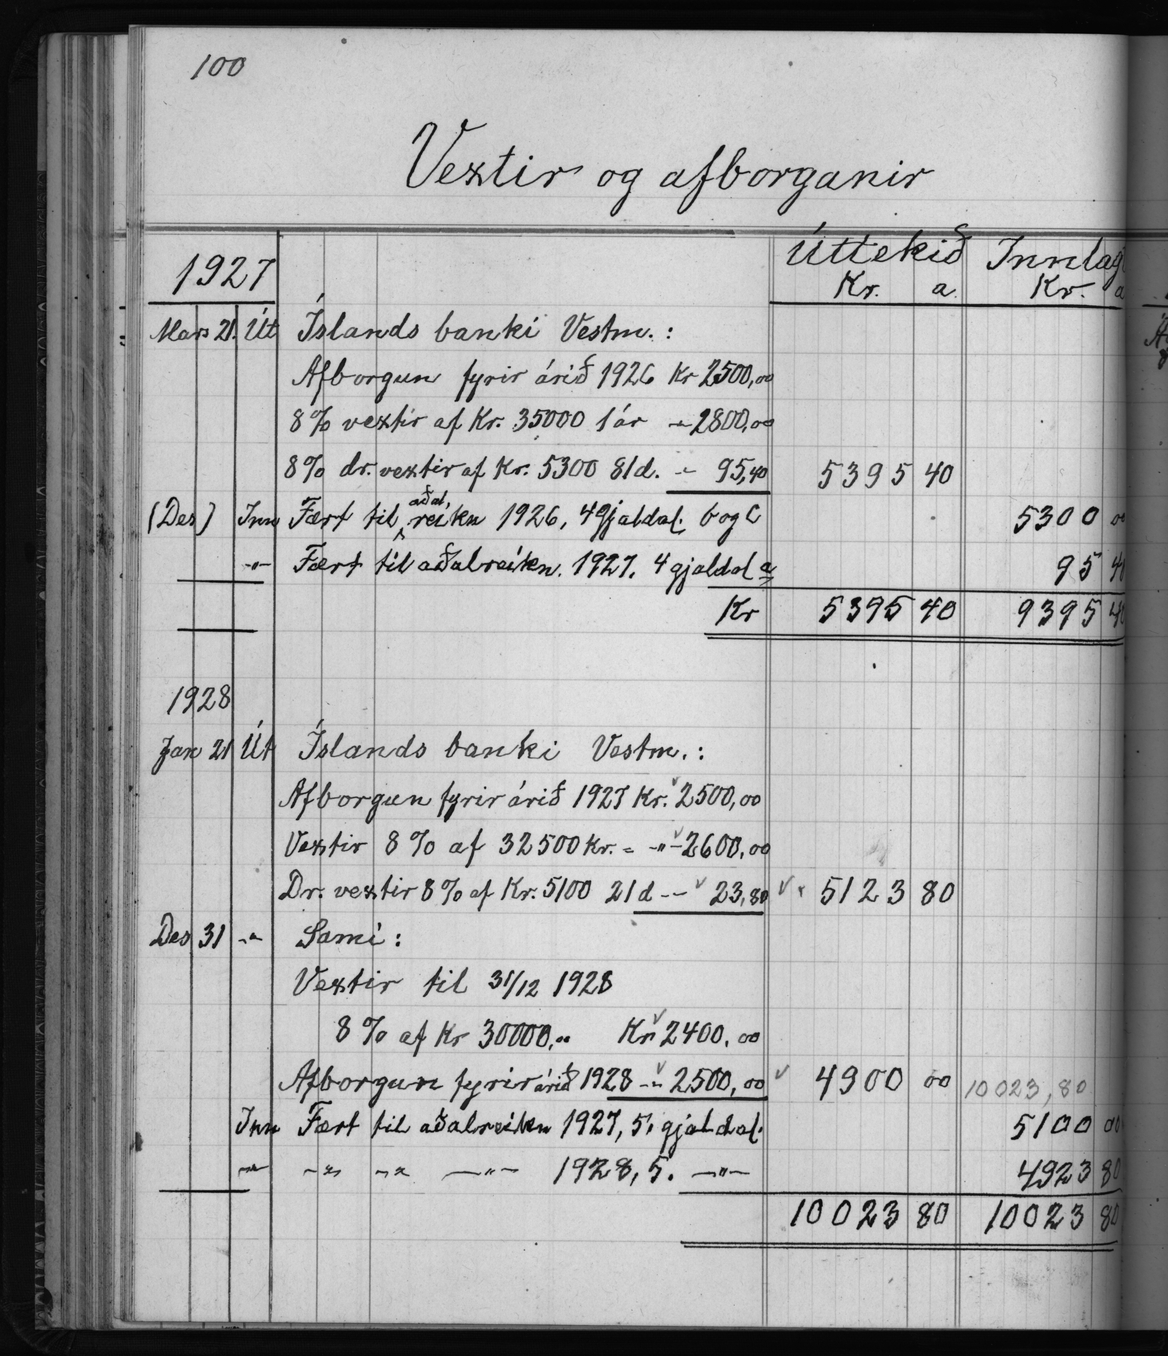 100
Vextir og afborganir
Úttekið Innlag
1927 Kr. a. Kr. a
Mars 21. Út Íslands banki Vestm.:
Afborgun fyrir árið 1926 Kr 2500,00
8% vextir af Kr. 35000 1 ár -"- 2800,00
8% dr. vextir af Kr. 5300 81 d. -"- 95,40 5395 40
(Des) Inn Fært til aðal, reikn 1926, 4 gjaldal. b og c 5300 00
-"- Fært til aðalreikn. 1927. 4 gjaldal a 95 40
Kr 5395 40 9395 40
1928
Jan 21 Út Íslands banki Vestm.:
Afborgun fyrir árið 1927 Kr. 2500,00
Vextir 8% af 32500 Kr. = -"- 2600,00
Dr. vextir 8% af Kr. 5100 21 d -"- 23,80 5123 80
Des 31 -"- Sami:
Vextir til 31/12 1928
8% af Kr 30000,00 Kr. 2400,00
Afborgun fyrir árið 1928 -"- 2500,00 4900 00 10023,80
Inn Fært til aðalreikn 1927, 5. gjaldal. 5100 00
-"- -"- -"- -"- 1928, 5. -"- 4923 80
10023 80 10023 80